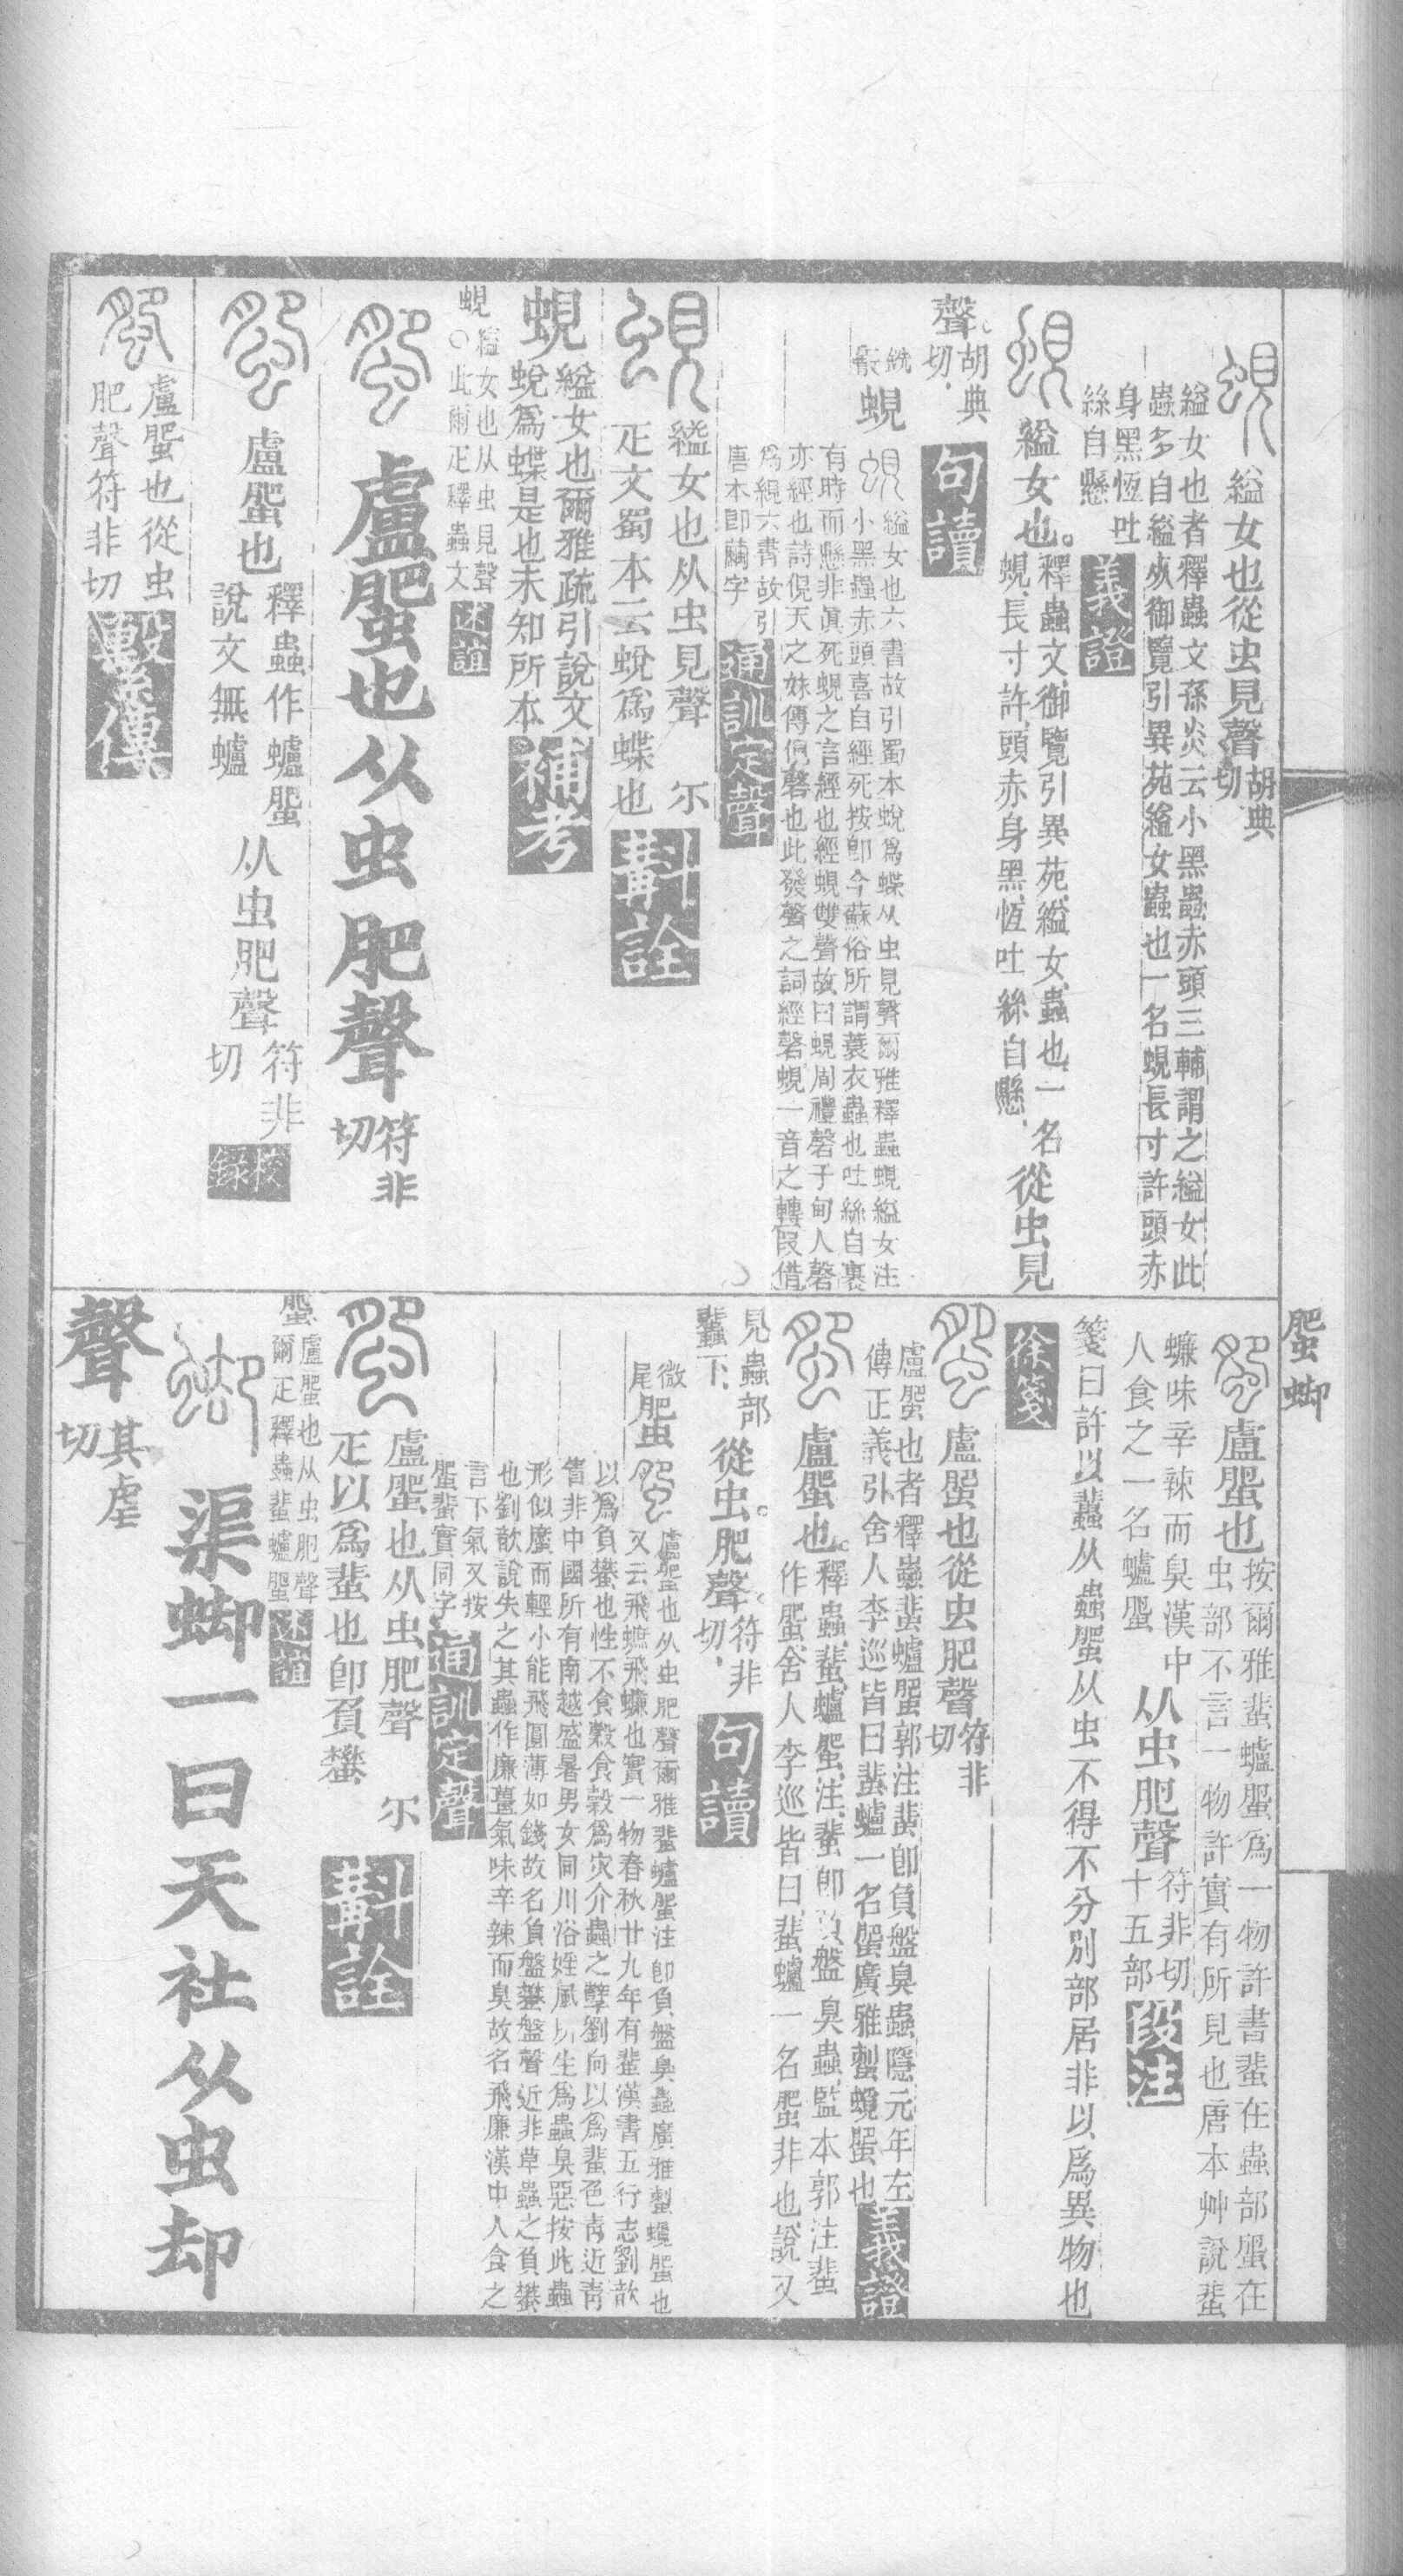 縊女也從虫見聲胡典切
縊女也者釋蟲文孫炎云小黑蟲赤頭三輔謂之縊女此
蟲多自縊死御覽引異苑縊女蟲也一名蜆長寸許頭赤
身黑恆吐
絲自懸
義證
縊女也。釋蟲文、御覽引異苑、縊女、蟲也、一名
蜆、長寸許、頭赤身黑、恆吐絲自懸、從虫見
聲、胡典切、
句讀
銑
蜆
縊女也六書故引蜀本蛻爲蝶从虫見聲爾雅釋蟲蜆縊女注
小黑蟲赤頭喜自經死按卽今蘇俗所謂蓑衣蟲也吐絲自裹
有時而懸非眞死蜆之言經也經蜆雙聲故曰蜆周禮磬于甸人磬
亦經也詩俔天之妹傳俔磬也此發聲之詞經磬蜆一音之轉叚借
爲繭六書故引
唐本卽繭字
通訓定聲
縊女也从虫見聲 尓
疋文蜀本云蛻爲蝶也
斠詮
蜆
縊女也爾雅疏引說文
蛻爲蝶是也未知所本
補考
蜆
縊女也从虫見聲
○此爾疋釋蟲文
述誼
盧蜰也从虫肥聲符非切
盧蜰也
釋蟲作蠦蜰
說文無蠦
从虫肥聲符非切
校錄
盧蜰也從虫
肥聲符非切
繫傳
蜰 蝍
盧蜰也
按爾雅蜚蠦蜰爲一物許書蜚在蟲部蜰在
虫部不言一物許實有所見也唐本艸說蜚
蠊味辛辣而臭漢中
人食之一名蠦蜰
从虫肥聲
符非切
十五部
段注
箋曰許以蜚从蟲蜰从虫不得不分別部居非以爲異物也
徐箋
盧蜰也從虫肥聲符非切
盧蜰也者釋蟲蜚蠦蜰郭注蜚卽負盤臭蟲隱元年左
傳正義引舍人李巡皆曰蜚蠦一名蜰廣雅蟹蜆蜰也
義證
盧蜰也。釋蟲、蜚、蠦蜰、注、蜚卽負盤臭蟲、監本郭注蜚
作蜰、舍人李巡皆曰、蜚蠦一名蜰、非也、說又
見蟲部
蜚下、
從虫。肥聲。符非切、
句讀
微
尾
蜰
盧蜰也从虫肥聲爾雅蜚蠦蜰注卽負盤臭蟲
又云飛蟅飛蠊也實一物春秋廿九年有蜚漢書五行志劉歆
以爲負蠜也性不食穀食穀爲災介蟲之孽劉向以爲蜚色青近青
眚非中國所有南越盛暑男女同川浴婬風所生爲蟲臭惡按此蟲
形似䗪而輕小能飛圓薄如錢故名負盤蠜盤聲近非草蟲之負蠜
也劉歆說失之其蟲作廉薑氣味辛辣而臭故名飛廉漢中人食之
言下氣又按
蜰蜚實同字
通訓定聲
盧蜰也从虫肥聲 尓
疋以爲蜚也卽負蠜
斠詮
蜰
盧蜰也从虫肥聲
爾疋釋蟲蜚蠦蜰
述誼
渠蝍一曰天社从虫却
聲其虐切